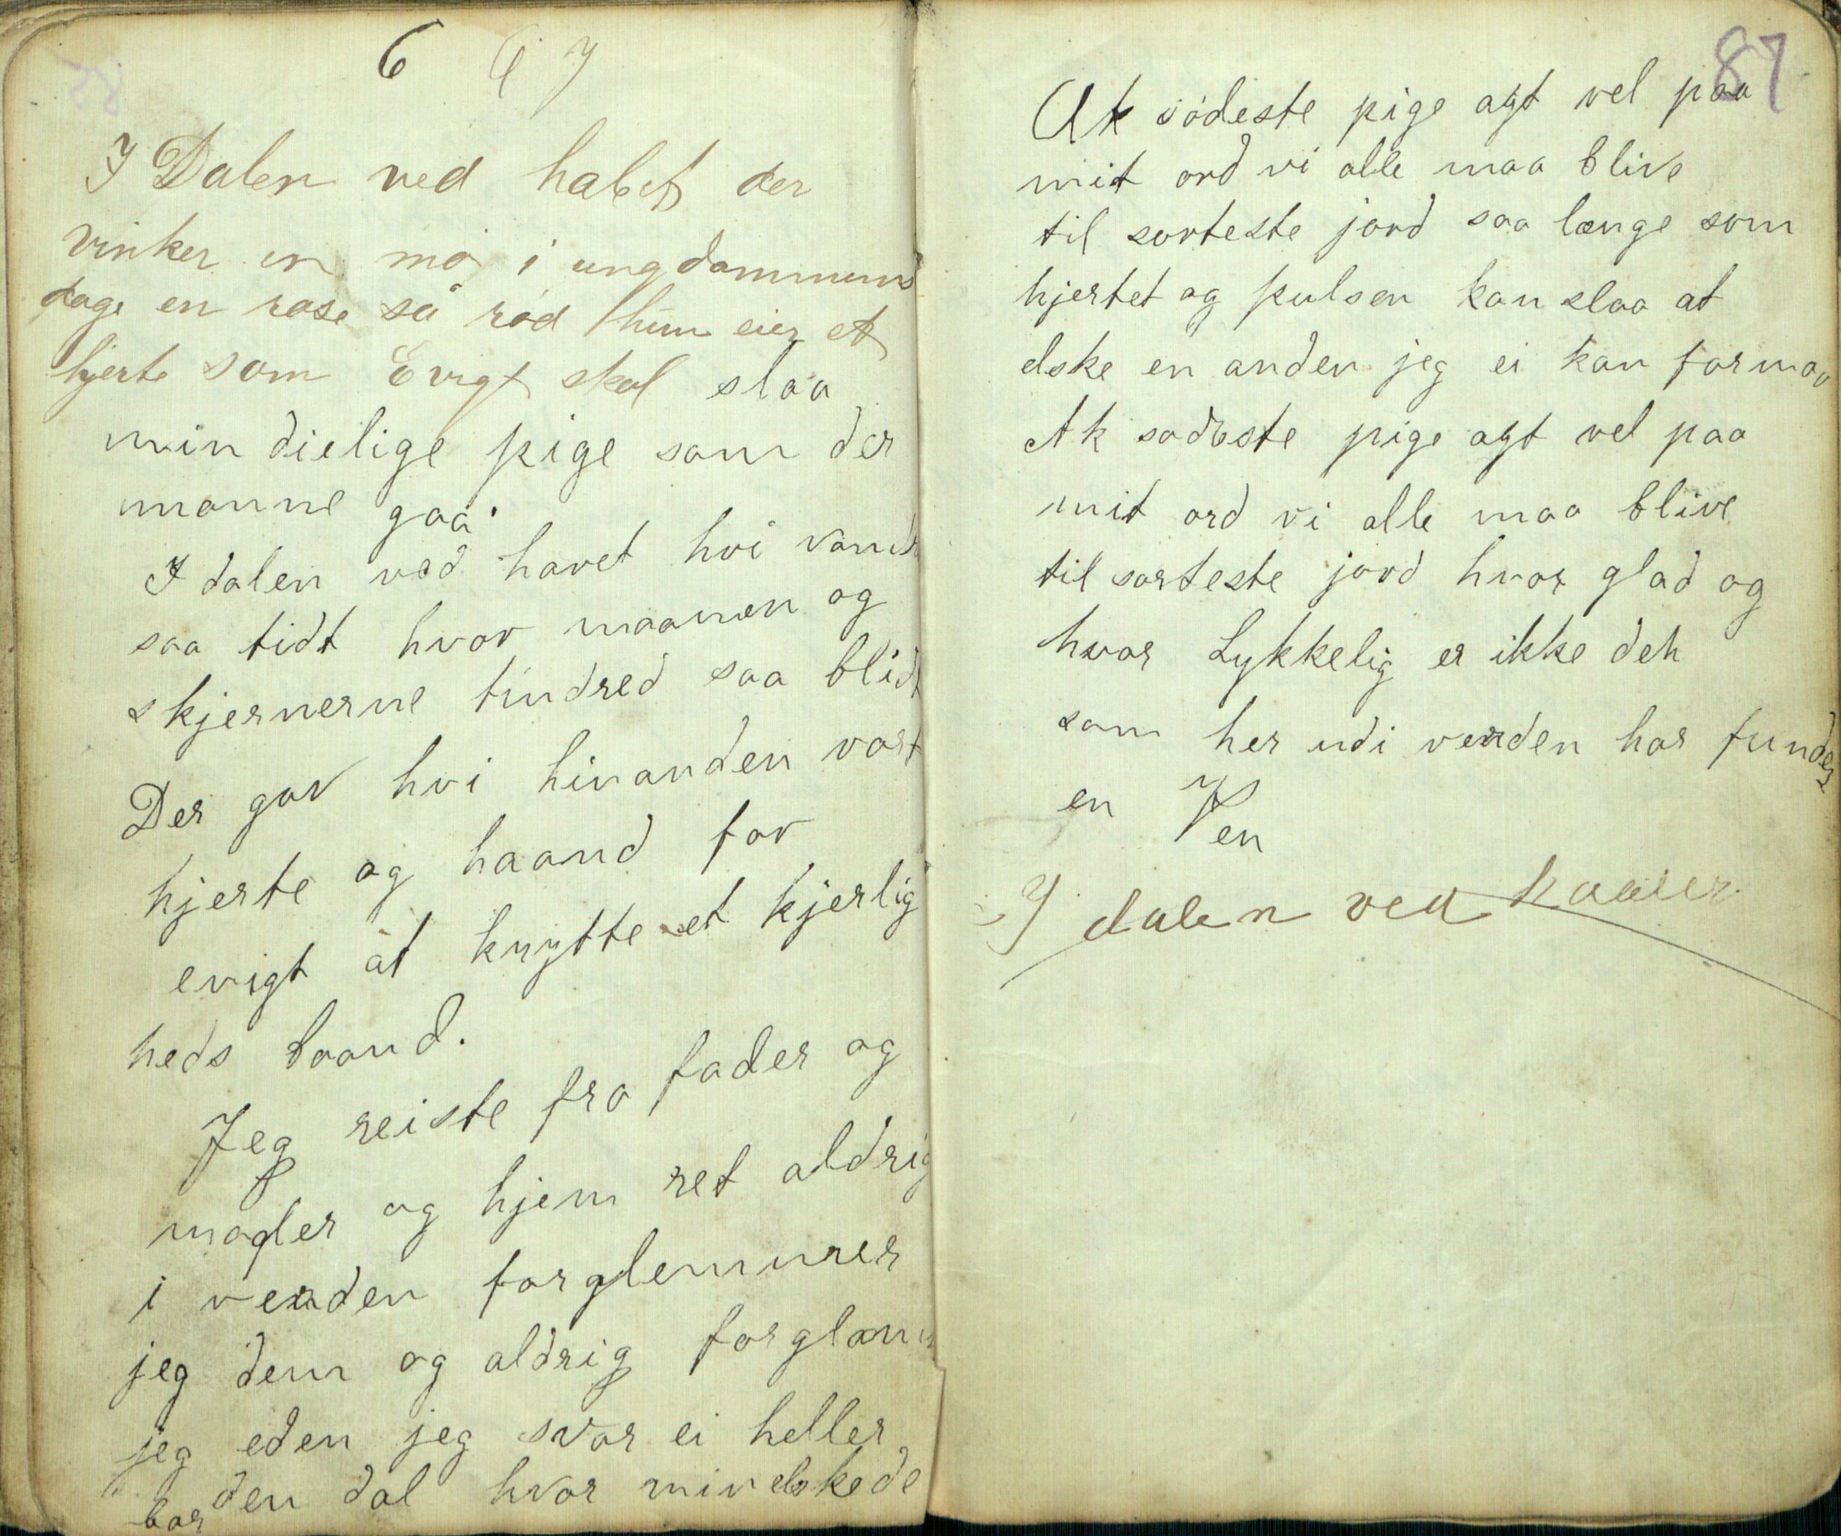 6 6 7
I Dalen ved habet der
vinker en mø i ungdommens
dage en rose så rød hun eier et
hjerte som Evigt skal slaa
min dielige pige som der
monne gaa.
I dalen ved havet hvi vand
saa tidt hvor maanen og
skjernerne tindred saa blidt
Der gav hvi hinanden vort
hjerte og haand for
evigt at knytte et kjerlig
heds baand.
Jeg reiste fra fader og
moder og hjem ret aldrig
i verden forglemmer
jeg dem og aldrig forglem
jeg eden jeg svor ei heller
den dal hvor min elskede
bor
87
Ak sødeste pige agt vel paa
mit ord vi alle maa blive
til sorteste jord saa længe som
hjertet og pulsen kan slaa at
elske en anden jeg ei kan formaa
Ak sodeste pige agt vel paa
mit ord vi alle maa blive
til sorteste jord hvor glad og
hvor Lykkelig er ikke den
som her udi verden har funden
en Ven
I dalen ved